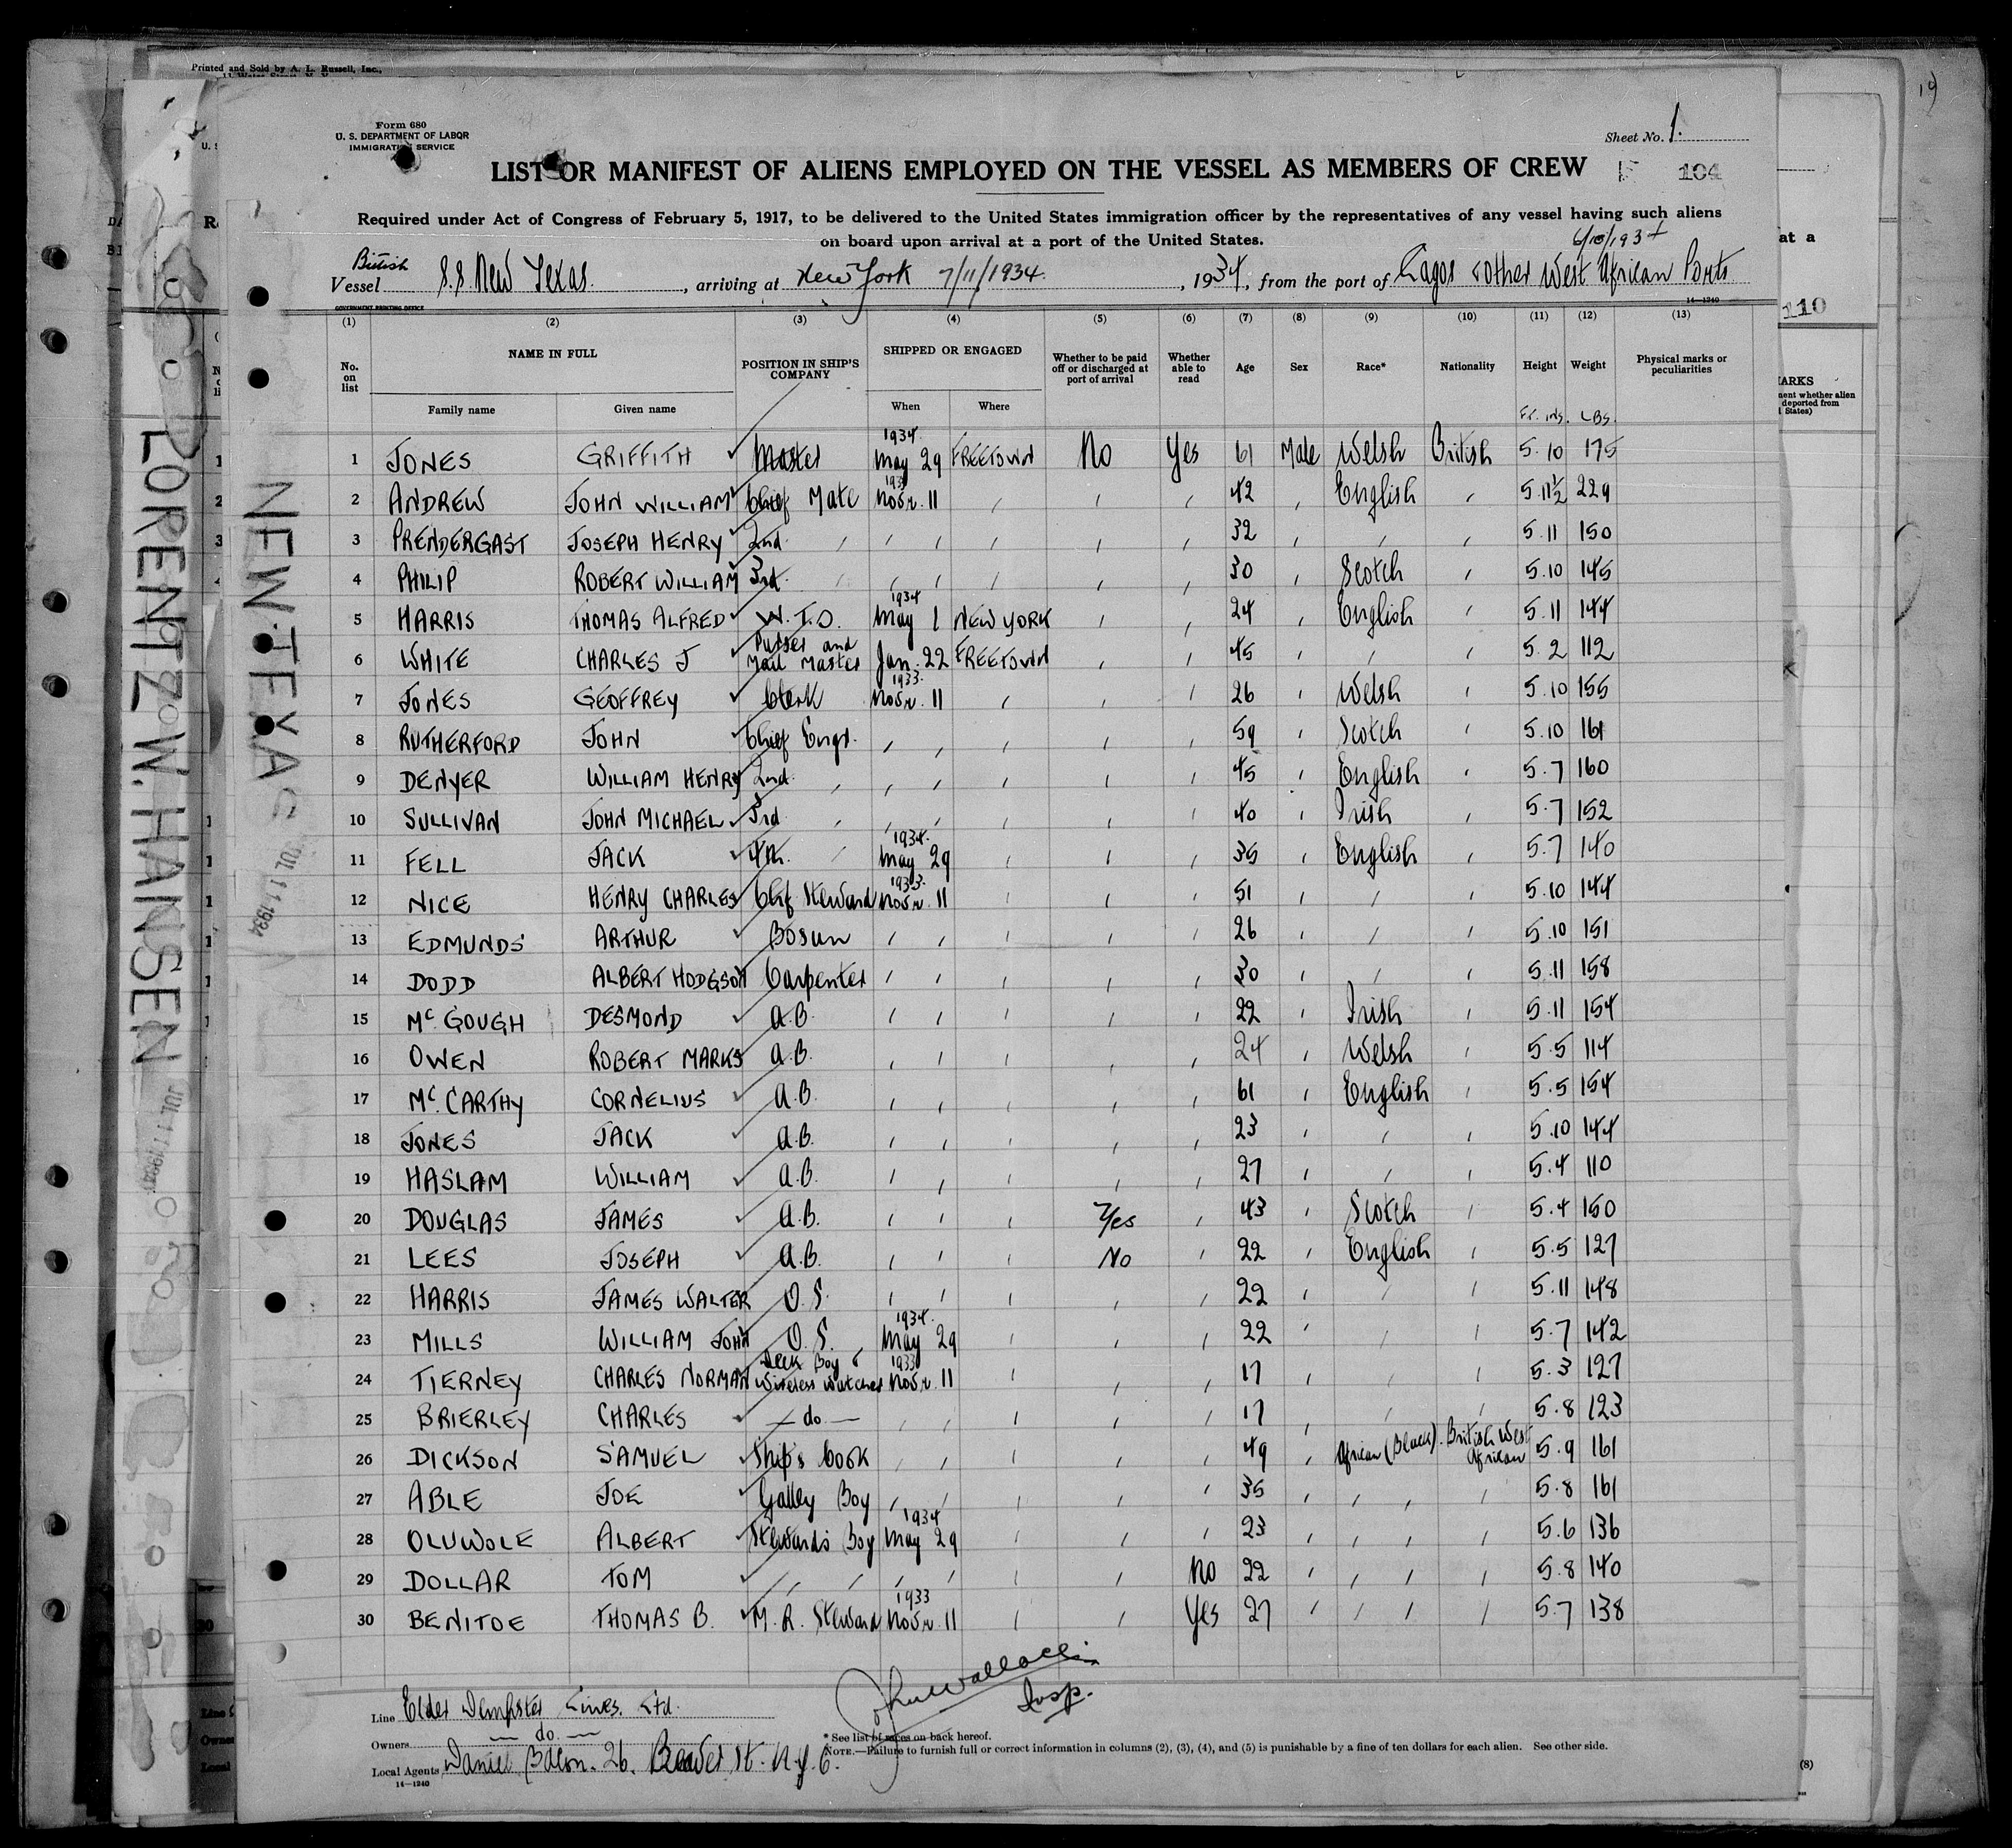 Printed and Sold by A. L. Russell, Inc.,
Form 680
U. S. DEPARTMENT OF LABOR
IMMIGRATION SERVICE
Sheet No. 1.
LIST OR MANIFEST OF ALIENS EMPLOYED ON THE VESSEL AS MEMBERS OF CREW
104
Required under Act of Congress of February 5, 1917, to be delivered to the United States immigration officer by the representatives of any vessel having such aliens
on board upon arrival at a port of the United States.
British
Vessel S.S. New Texas. , arriving at New York 7/11/1934. , 1934, from the port of Lagos & other West African Ports
GOVERNMENT PRINTING OFFICE
14—1240
(1) (2) (3) (4) (5) (6) (7) (8) (9) (10) (11) (12) (13)
No. on list NAME IN FULL POSITION IN SHIP'S COMPANY SHIPPED OR ENGAGED Whether to be paid off or discharged at port of arrival Whether able to read Age Sex Race* Nationality Height Weight Physical marks or peculiarities
Family name Given name When Where Ft. ins. LBS.
1 JONES GRIFFITH Master 1934. May 29 FREETOWN No Yes 61 Male Welsh British 5.10 175
2 ANDREW JOHN WILLIAM Chief Mate 1933 Novr. 11 " " " 42 " English " 5.11½ 229
3 PRENDERGAST JOSEPH HENRY 2nd. " " " " " " 32 " " " 5.11 150
4 PHILIP ROBERT WILLIAM 3rd. " " " " " " 30 " Scotch " 5.10 145
5 HARRIS THOMAS ALFRED W.T.O. 1934 May 1 NEW YORK " " 24 " English " 5.11 144
6 WHITE CHARLES J Purser and Mail Master Jan. 22 FREETOWN " " 45 " " " 5.2 112
7 JONES GEOFFREY Clerk 1933. Novr. 11 " " " 26 " Welsh " 5.10 155
8 RUTHERFORD JOHN Chief Engr. " " " " " 59 " Scotch " 5.10 161
9 DENYER WILLIAM HENRY 2nd. " " " " " " 45 " English " 5.7 160
10 SULLIVAN JOHN MICHAEL 3rd. " " " " " " 40 " Irish " 5.7 152
11 FELL JACK 4th. " 1934. May 29 " " " 35 " English " 5.7 140
12 NICE HENRY CHARLES Chf Steward 1933. Novr. 11 " " " 51 " " " 5.10 144
13 EDMUNDS ARTHUR Bosun " " " " " 26 " " " 5.10 151
14 DODD ALBERT HODGSON Carpenter " " " " " 30 " " " 5.11 158
15 Mc. GOUGH DESMOND A.B. " " " " " 22 " Irish " 5.11 154
16 OWEN ROBERT MARKS A.B. " " " " " 24 " Welsh " 5.5 114
17 Mc. CARTHY CORNELIUS A.B. " " " " " 61 " English " 5.5 154
18 JONES JACK A.B. " " " " " 23 " " " 5.10 144
19 HASLAM WILLIAM A.B. " " " " " 27 " " " 5.4 110
20 DOUGLAS JAMES A.B. " " " Yes " 43 " Scotch " 5.4 150
21 LEES JOSEPH A.B. " " " No " 22 " English " 5.5 127
22 HARRIS JAMES WALTER O.S. " " " " " 22 " " " 5.11 148
23 MILLS WILLIAM JOHN O.S. 1934. May 29 " " " 22 " " " 5.7 142
24 TIERNEY CHARLES NORMAN Deck Boy & Wireless Watcher 1933 Novr. 11 " " " 17 " " " 5.3 127
25 BRIERLEY CHARLES — do — " " " " " 17 " " " 5.8 123
26 DICKSON SAMUEL Ship's Cook " " " " " 49 " African (Black). British West African 5.9 161
27 ABLE JOE Galley Boy " " " " " 35 " " " " 5.8 161
28 OLUWOLE ALBERT Steward's Boy 1934 May 29 " " " 23 " " " " 5.6 136
29 DOLLAR TOM " " " " " " No 22 " " " " 5.8 140
30 BENITOE THOMAS B. M. R. Steward 1933 Novr. 11 " " Yes 27 " " " " 5.7 138
Line Elder Dempster Lines. Ltd.
Owners — do —
Local Agents Daniel Bacon. 26. Beaver St. N.Y.C.
14—1240
John Wallace
Insp.
* See list of races on back hereof.
NOTE.—Failure to furnish full or correct information in columns (2), (3), (4), and (5) is punishable by a fine of ten dollars for each alien. See other side.
NEW TEXAS
JUL 11 1934
LORENTZ W. HANSEN
110
(8)